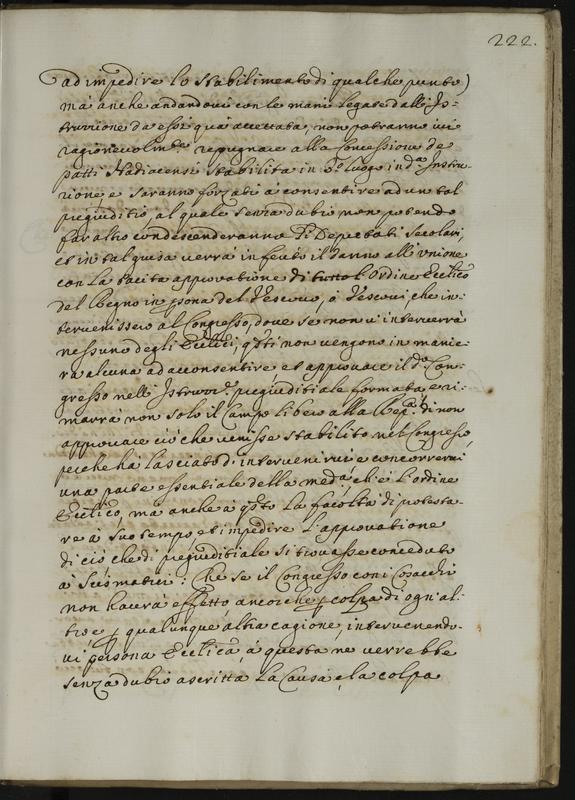 222.
ad impedire lo stabilimento di qualche punto)
mà anche andandoui con le mani legate dall'Is-
truzzione da essi quà accettata, non potranno iui
ragioneuolmte. repugnare alla Concessione de
patti Hadiacensi stabilita in Po. luogo in da. Instru-
zione, e saranno forzati à consentire ad un tal
pregiuditio, al quale senza dubio non potendo
far altro condescenderanno i Deputati Secolari,
et in tal guisa uerrà inferito il danno all'Unione
con la tacita approuatione di tutto l'Ordine Ecclico
del Regno in persona del Vescouo, ò Vescoui che in-
teruenissero al Congresso, doue se non u'interuerrà
nessuno degli Ecclici, qsti non uengono in manie-
ra alcuna ad acconsentire, et approuare il do. Con-
gresso nell'Istruze. pregiuditiale formata, e ri-
marrà non solo il Campo libero alla Repca. di non
approuare ciò che uenisse stabilito nel Congresso,
perche hà lasciato d'interuenirui e concorrerui
una parte essentiale della meda. ch'è l'ordine
Ecclico, mà anche à qsto la facoltà di protesta-
re à suo tempo, et impedire l'approuatione
di ciò che di pregiuditiale si trouasse conceduto
à Scismatici: Che se il Congresso con i Cosacchi
non hauerà effetto ancorche per colpa di ogn'al-
tro, e per qualunque altra cagione, interuenendo-
ui persona Ecclica, à questa ne uerrebbe
senza dubio ascritta la Causa, e la colpa